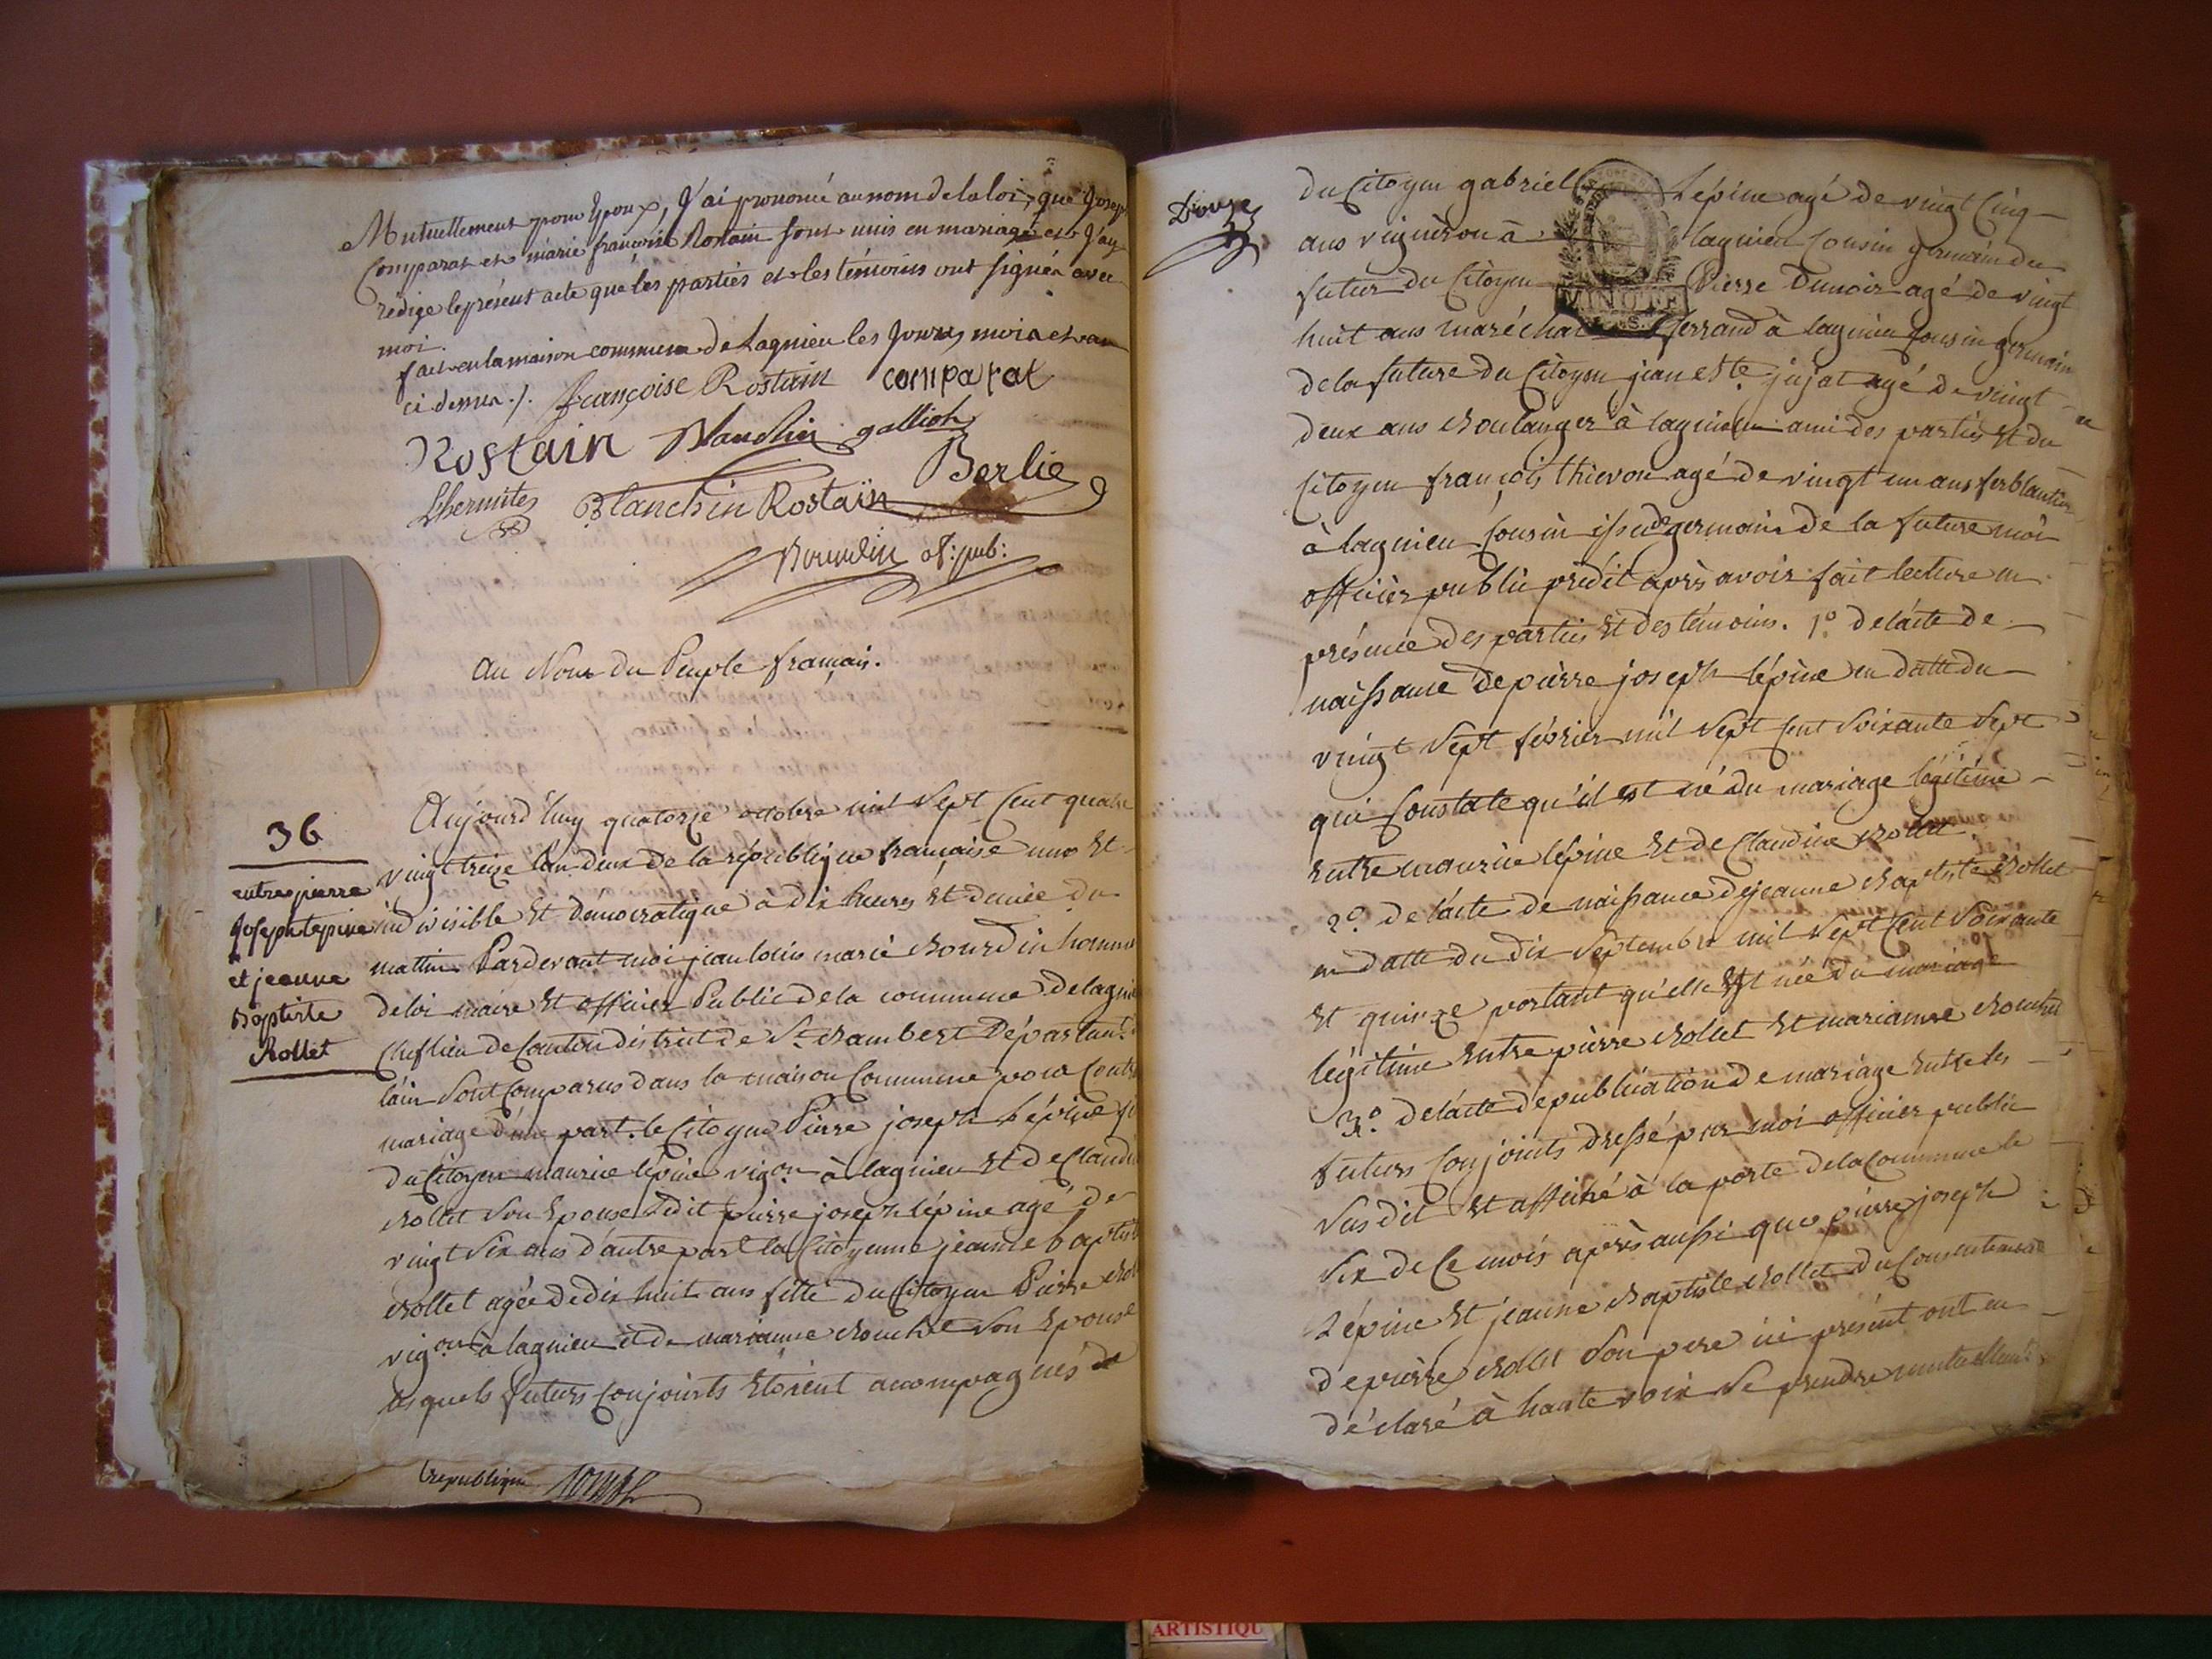 Mutuellement pour Epoux, J'ai prononcé au nom de la loi, que Joseph
Comparat et marie françoise Rostain sont unis en mariage et J'ay
rédigé le présent acte que les parties et les témoins ont signés avec
moi.
fait en la maison commune de Lagnieu les Jours, mois et an
ci dessus ./. françoise Rostain comparat
Rostain Blanchin galliot
Berlie
Lhermites Blanchin Rostaïn
Bourdin of: pub:
au Nom du Peuple français.
36
entre pierre
Joseph lepine
et jeanne
Baptiste
Rollet
Aujourd'huy quatorze octobre mil sept cent quatre
vingt treize l'an deux de la république française une Et
indivisible Et démocratique à dix heures Et demie du
mattin Pardevant moi jean louis marie Bourdin homme
de loi maire Et officier Public de la commune de lagnieu
Cheflieu de Canton district de St. Rambert Départemt. de
l'ain sont comparus dans la maison Commune pour Contra
mariage d'une part. le Citoyen Pierre joseph Lépine fi
du Citoyen maurice lépine vigon. à lagnieu Et de Claudi
Rollet son Epouse ledit pierre joseph lépine agé de
vingt six ans d'autre part la Citoyenne jeanne baptiste
Rollet agée de dix huit ans fille du Citoyen Pierre Rol
vigon à lagnieu et de marianne son Epouse
lesquels futurs Conjoints Etoient accompagnés de
republique
Douze
du Citoyen gabriel Lépine agé de vingt Cinq
ans vigneron à lagnieu Cousin germain du
futur du Citoyen Pierre Dunoir agé de vingt
MINUTE
huit ans maréchal ferrand à lagnieu Cousin germain
de la future du Citoyen jean Bte. jujat agé de vingt
deux ans Boulanger à lagnieu ami des parties Et du
Citoyen françois thievon agé de vingt un ans ferblantier
à lagnieu Cousin issu de germain de la future moi
officier public prédit après avoir fait lecture en
présence des parties Et des témoins. 1o. de l'acte de
naissance de pierre joseph lépine en datte du
vingt sept février mil sept Cent soixante sept
qui Constate qu'il est né du mariage légitime
Entre maurice lépine Et de Claudine Rollet
2o. de l'acte de naissance de jeanne Baptiste Rollet
en datte du dix septembre mil sept Cent soixante
Et quinze portant qu'elle Est née du mariage
légitime Entre pierre Rollet Et marianne
3o. de l'acte de publication de mariage Entre les
futurs Conjoints dressé par moi officier public
susdit Et affiché à la porte de la Commune le
six de Ce mois après aussi que pierre joseph
Lépine Et jeanne Baptiste Rollet du Consentement
de pierre Rollet son pere ici présent ont eu
déclaré à haute voix se prendre mutuellemt.
ARTISTIQU